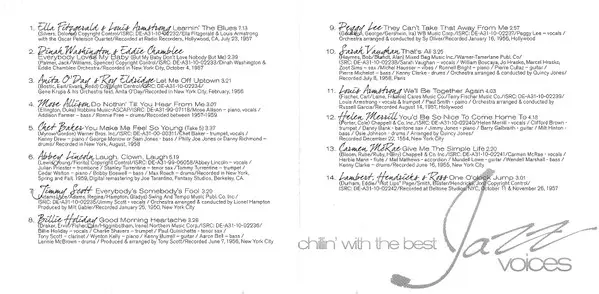 1. Ella Fitzgerald & Louis Armstrong Learnin' The Blues 7.13
(Silvers, Dolores) Copyright Control/ISRC: DE-A31-10-02232/Ella Fitzgerald & Louis Armstrong
with the Oscar Peterson Quartet/Recorded at Radio Recorders, Hollywood, CA, July 23, 1957
2. Dinah Washington & Eddie Chamblee
Everybody Loves My Baby (But My Baby Don't Love Nobody But Me) 2.39
(Palmer, Jack/Williams, Spencer) Copyright Control/ISRC: DE-A31-10-02233/Dinah Washington &
Eddie Chamblee Orchestra/Recorded in New York City, October 4, 1957
3. Anita O'Day & Roy Eldridge Let Me Off Uptown 3.21
Copyright Control/ISRC: DE-A31-10-02234/
Gene Krupa & his Orchestra feat. Anita O'Day/Recorded in New York City, February, 1956
4. Mose Allison Do Nothin' Til You Hear From Me
(Ellington, Duke) Robbins Music/ASCAP/ISRC: DE-A31-99-07118/Mose Allison – piano, vocals /
Addison Farmer – bass / Ronnie Free – drums/Recorded between 1957-1959
5. Chet Baker You Make Me Feel So Young (Take 5) 3.37
Warner Bros. Inc./ISRC: DE-A31-10-02235/Chet Baker – trumpet, vocals /
Kenny Drew – piano / George Morrow – Sam Jones – bass / Philly Joe Jones or Danny Richmond –
drums/Recorded in New York, August, 1958
6. Abbey Lincoln Laugh, Clown, Laugh 5.19
Copyright Control/ISRC: DE-A31-96-06058/Abbey Lincoln – vocals /
Julian Priester – trombone / Stanley Turrentine – tenor sax / Tommy Turrentine – trumpet /
Cedar Walton – piano / Bobby Boswell – bass / Max Roach – drums/Recorded in New York,
Spring and Fall, 1959, Digital remastering by Joe Tarantino, Fantasy Studios, Berkeley, CA.
7. Jimmy Scott Everybody's Somebody's Fool 3.20
Gladys) Swing And Tempo Music Publ. Co. Inc./
Scott – vocals / Orchestra arranged & conducted by Lionel Hampton
Produced by Milt Gabler/Recorded January 25, 1950, New York City
8. Billie Holiday Good Morning Heartache 3.28
Irene) Northern Music Corp./ISRC: DE-A31-10-02236/
Billie Holiday – vocals / Charlie Shavers – trumpet / Paul Quinichette – tenor sax /
Tony Scott – clarinet / Wynton Kelly – piano / Kenny Burrell – guitar / Aaron Bell – bass /
Lennie McBrown – drums / Produced & arranged by Tony Scott/Recorded June 7, 1956, New York City
9. Peggy Lee They Can't Take That Away From Me 2.57
(Gershwin, George/Gershwin, Ira) WB Music Corp./ISRC: DE-A31-10-02237/Peggy Lee – vocals /
Orchestra arranged & conducted by Sy Oliver/Recorded January 16, 1956, Hollywood
10. Sarah Vaughan That's All 3.25
Warner-Tamerlane Publ. Co./
Sarah Vaughan – vocals / William Boucaya, Jo Hrasko, Marcel Hrasko,
Zoot Sims – sax /Michel Hausser – vibes / Ronnell Bright – piano / Pierre Cullaz – guitar /
Pierre Michelot – bass / Kenny Clarke – drums / Orchestra arranged & conducted by Quincy Jones/
Recorded July 8, 1958, Paris
11. Louis Armstrong We'll Be Together Again 4.03
Louis Armstrong – vocals & trumpet / Paul Smith – piano / Orchestra arranged & conducted by
Russell Garcia/Recorded August 14, 1957, Hollywood
12. Helen Merrill You'd Be So Nice To Come Home To 4.18
(Porter, Cole) Chappell & Co. Inc./ISRC: DE-A31-10-02240/Helen Merrill – vocals / Clifford Brown –
trumpet / Danny Bank – baritone sax / Jimmy Jones – piano / Barry Galbraith – guitar / Milt Hinton –
bass / Osie Johnson – drums / Arranged by Quincy Jones/
Recorded December 22, 1954, New York City
13. Carmen McRae Give Me The Simple Life 2.20
Chappell & Co. Inc./ISRC: DE-A31-10-02241/Carmen McRae – vocals /
Herbie Mann – flute / Mat Mathews – accordion / Mundell Lowe – guitar / Wendell Marshall – bass /
Kenny Clarke – drums/Recorded June 16, 1955, New York City
14. Lambert, Hendricks & Ross One O'clock Jump 3.01
(Durham, Eddie/"Hot Lips" Page/Smith, Buster/Hendricks, Jon) Copyright Control/
ISRC: DE-A31-10-02242/Recorded at Beltone Studios NYC, October 11 & November 26, 1957
chillin' with the best Jazz
voices